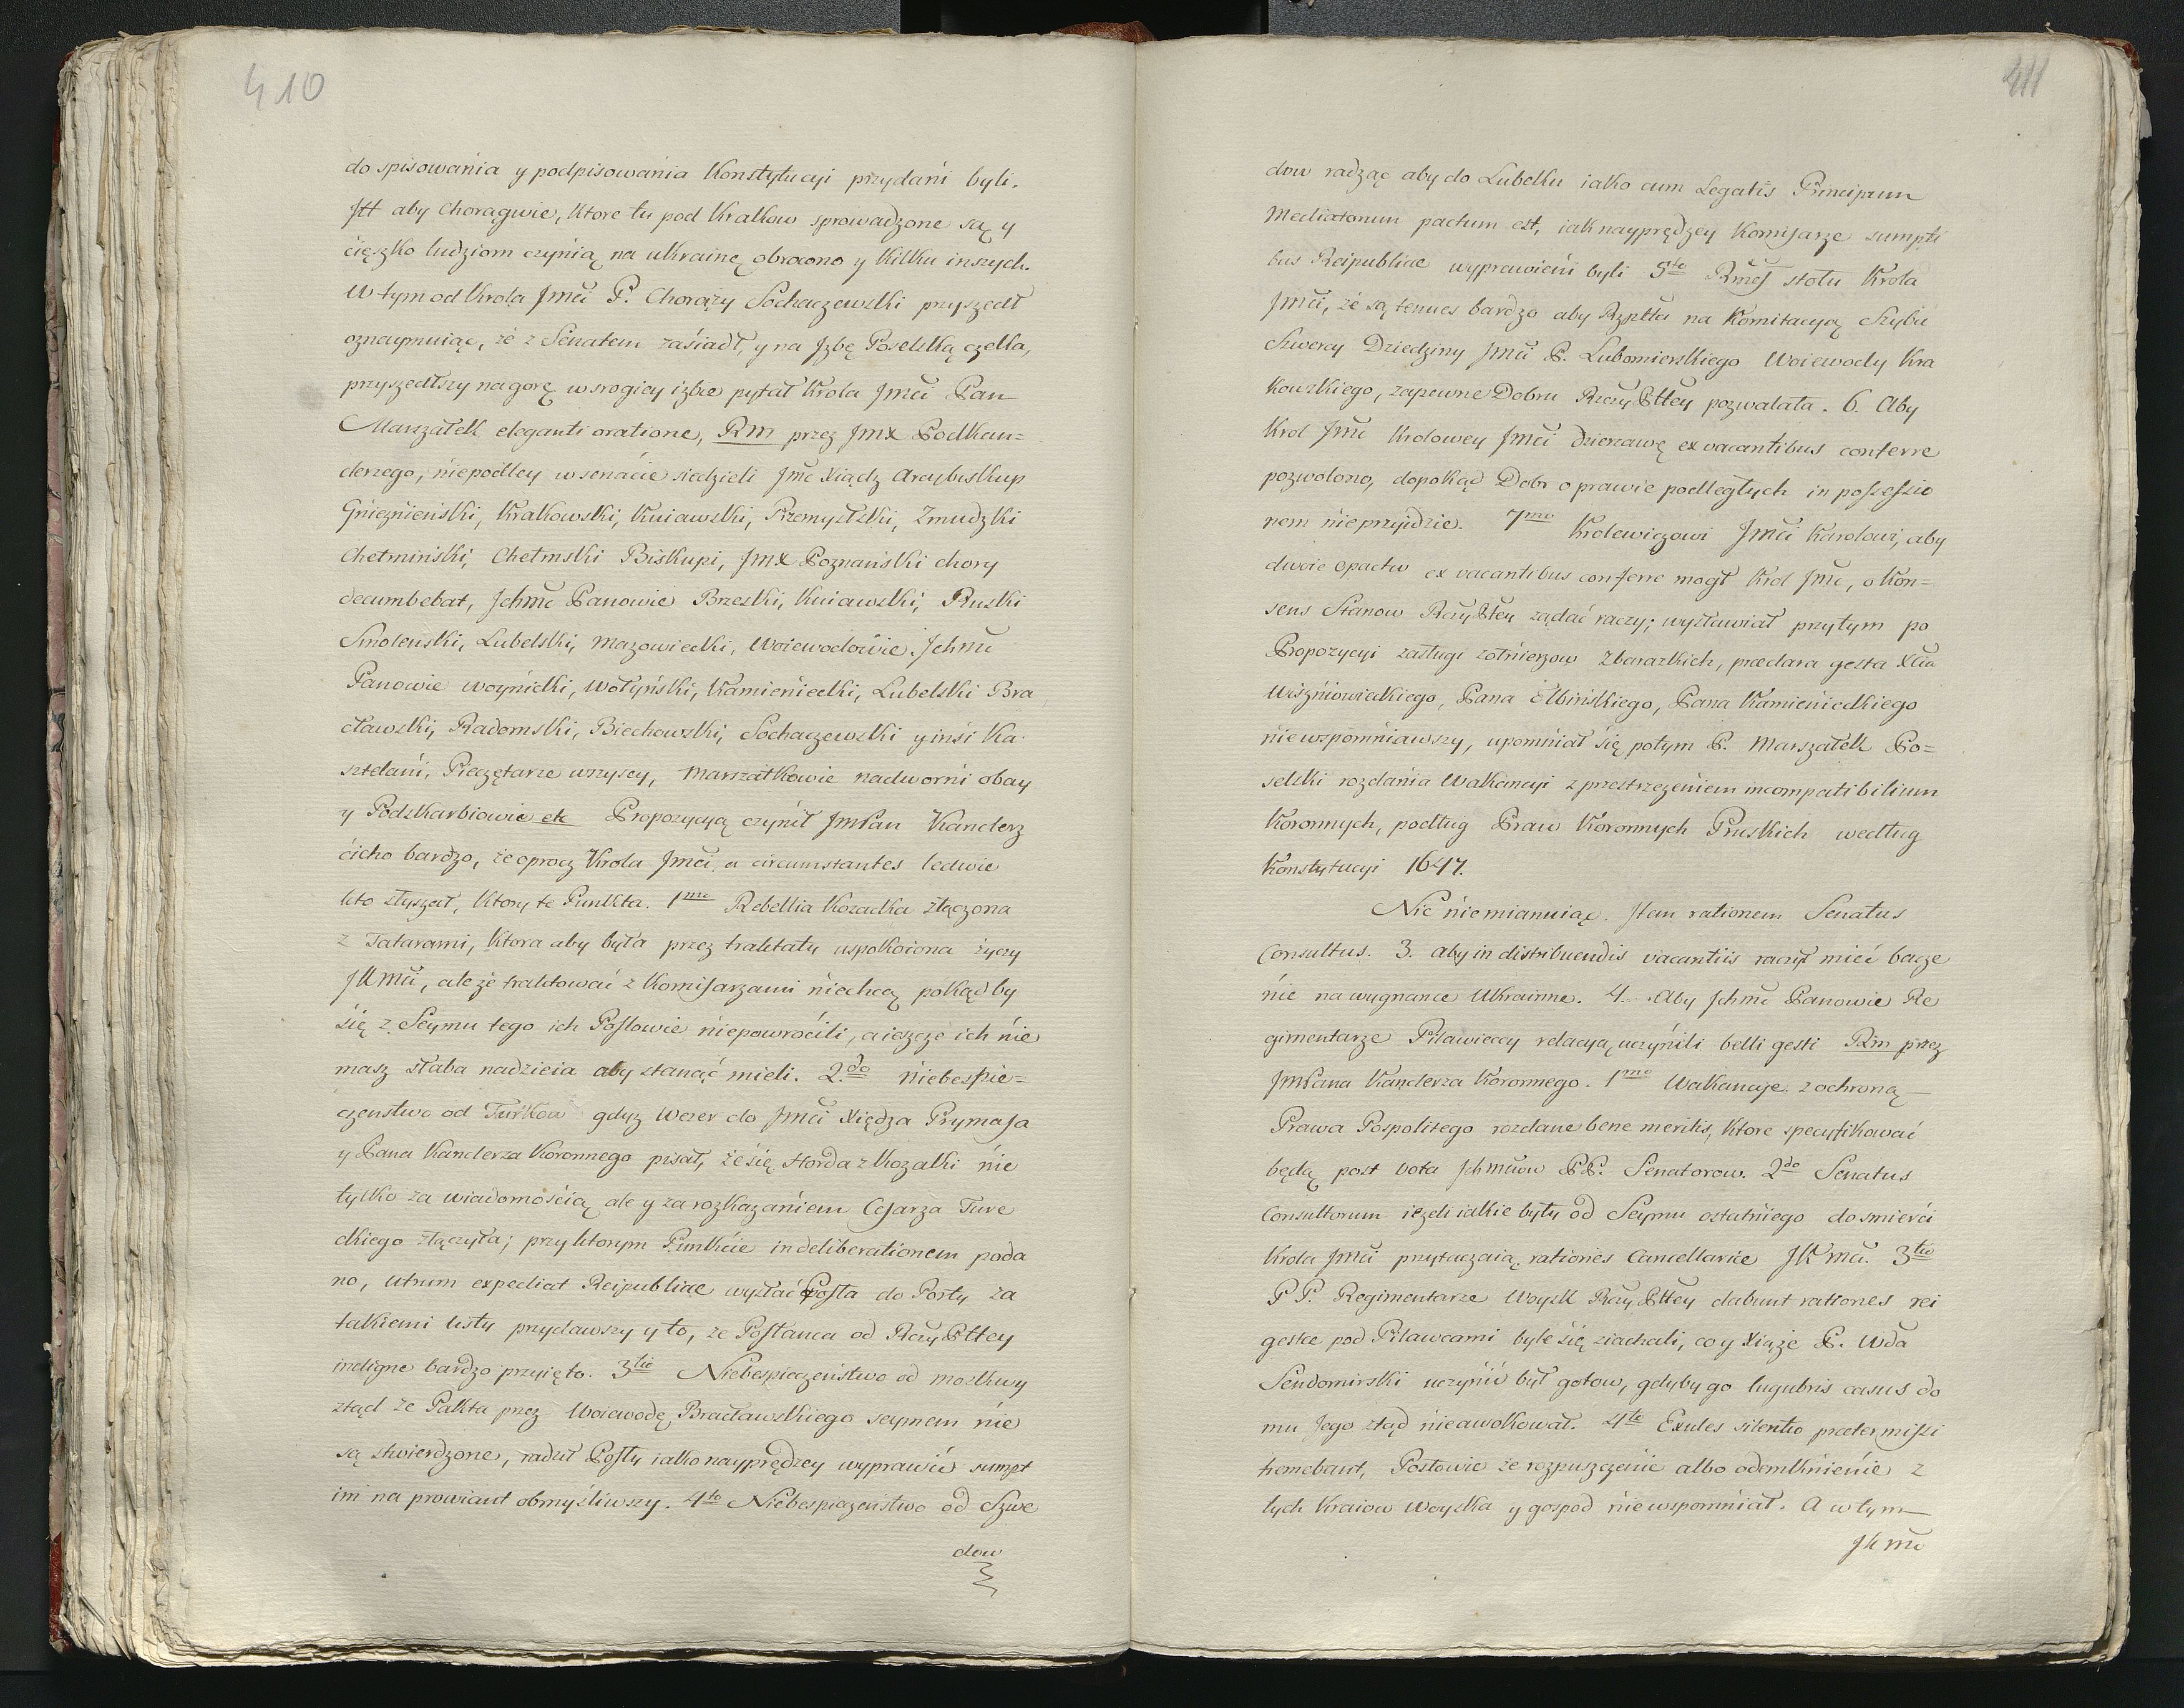 410
do spisowania y podpisowania Konstytucyi przydani byli.
Itt aby choragwie, Ktore tu pod Krakow sprowadzone są y
cięszko ludziom czynią na ukrainę obrocono y kilku inszych.
W tym od Krola Jmći P. Chorąży Sochaczewski przyszedł
oznaymuiąc, że z Senatem zasiadł, y na Jzbę Poselską czeka,
przyszedłszy na gorę w srogiey izbie pytał Krola Jmći Pan
Marszałek eleganti oratione, Rm przez Jmx Podkan=
clerzego, niepodley w senacie siedzieli Jmć Xiądz Arcybiskup
Gnieznienski, Krakowski, Kuiawski, Przemyślski, Zmudzki
Chełminski, Chełmski Biskupi, Jmx Poznański chory
decumbebat, Jchmć Panowie Brzeski, Kuiawski, Ruski
Smolenski, Lubelski, Mazowiecki, Woiewodowie. Jchmć
Panowie woynicki, Wołyński, Kamieniecki, Lubelski Bra
cławski, Radomski, Biechowski, Sochaczewski y insi Ka
sztelani, Pieczętarze wszyscy, Marszałkowie nadworni obay
y Podskarbiowie etc Propozycyą czynił JmPan Kanclerz
cicho bardzo, że oprocz Krola Jmći a circumstantes ledwie
kto słyszał, Ktory te Punkta. 1mo Rebellia Kozacka złączona
z Tatarami, Ktora aby była przez traktaty uspokoiona życzy
JKmći, ale że traktować z Komisarzami niechcą pokąd by
się z Seymu tego ich Posłowie niepowrócili, a ieszcze ich nie
masz słaba nadzieia aby stanąć mieli. 2do Niebespie=
czenstwo od Turkow gdyz Wezer do Jmći Xiędza Prymasa
y Pana Kanclerza Koronnego pisał, że się Horda z Kozaki nie
tylko za wiadomością ale y za rozkazaniem Cesarza Ture
ckiego złączyła; przy ktorym Punkcie in deliberationem poda
no, utrum expediat Reipublicae wysłać Posła do Porty za
takiemi listy przydawszy y to, ze Posłanca od Rzczy Ptłey
indigne bardzo przyięto. 3tio Niebespieczeństwo od moskwy
ztąd że Pakta przez Woiewodę Bracławskiego seymem nie
są stwierdzone, radził Posły iako nayprędzey wyprawić sumpt
im na prowiant obmyśliwszy. 4to Niebespieczeństwo od Szwe
dow
411
dow radząc aby do Lubeku iako cum Legatis Principum
Mediatorum pactum est, iak nayprędzey Komisarze sumpti
bus Reipublicae wyprawieni byli 5to stołu Krola
Jmći, że są tenues bardzo aby Rzptta na Komitacyą Szybu
Szwercy Dziedziny Jmći P. Lubomierskiego Woiewody Kra
kowskiego, zapewne Dobru Rzczy Ptłey pozwalała. 6. Aby
Krol Jmć Krolowey Jmći dzierzawę ex vacantibus conferre
pozwolono, dopokąd Dobr oprawie podległych in possessio
nem nieprzyidzie. 7mo Krolewiczowi Jmći Karolowi, aby
dwoie opactw ex vacantibus conferre mogł Krol Jmć, o Kon=
sens Stanow Rzczy Ptłey ządać raczy; wysławiał przytym po
Propozycyi zasługi zołnierzow Zbarazkich, praeclara gesta Xcia
Wiszniowieckiego, Pana Elbińskiego, Pana Kamienieckiego
niewspomniawszy, upomniał się potym P. Marszałek Po=
selski rozdania Wakancyi z przestrzeżeniem incompatibilium
Koronnych, podług Praw Koronnych Pruskich według
Konstytucyi 1647.
Nic niemianuiąc. Item rationem Senatus
Consultus. 3. aby in distribuendis vacantiis raczył mieć bacze
nie na wygnance Ukrainne. 4. Aby Jchmć Panowie Re
gimentarze Pilawieccy relacyą uczynili belli gesti Rm przez
JmPana Kanclerza Koronnego. 1mo Wakancye z ochroną
Prawa Pospolitego rozdane bene meritis, Ktore specyfikować
będą post vota Jchmciow PP. Senatorow. 2do Senatus
Consultorum iezeli iakie były od Seymu ostatniego do smierći
Krola Jmći przytaczaią rationes Cancellariae JKmći. 3tio
PP. Regimentarze Woysk Rzczy Ptłey dabunt rationes rei
gestae pod Pilawcami byle się ziachali, co y Xiąże P. Wda
Sendomirski uczynić był gotow, gdyby go lugubris casus do
mu Jego ztąd nieawokował. 4to Exules silentio praetermissi
tremebant, Posłowie że rozpuszczenie albo odemknienie z
tych Kraiow Woyska y gospod niewspomniał. A w tym
JK mć